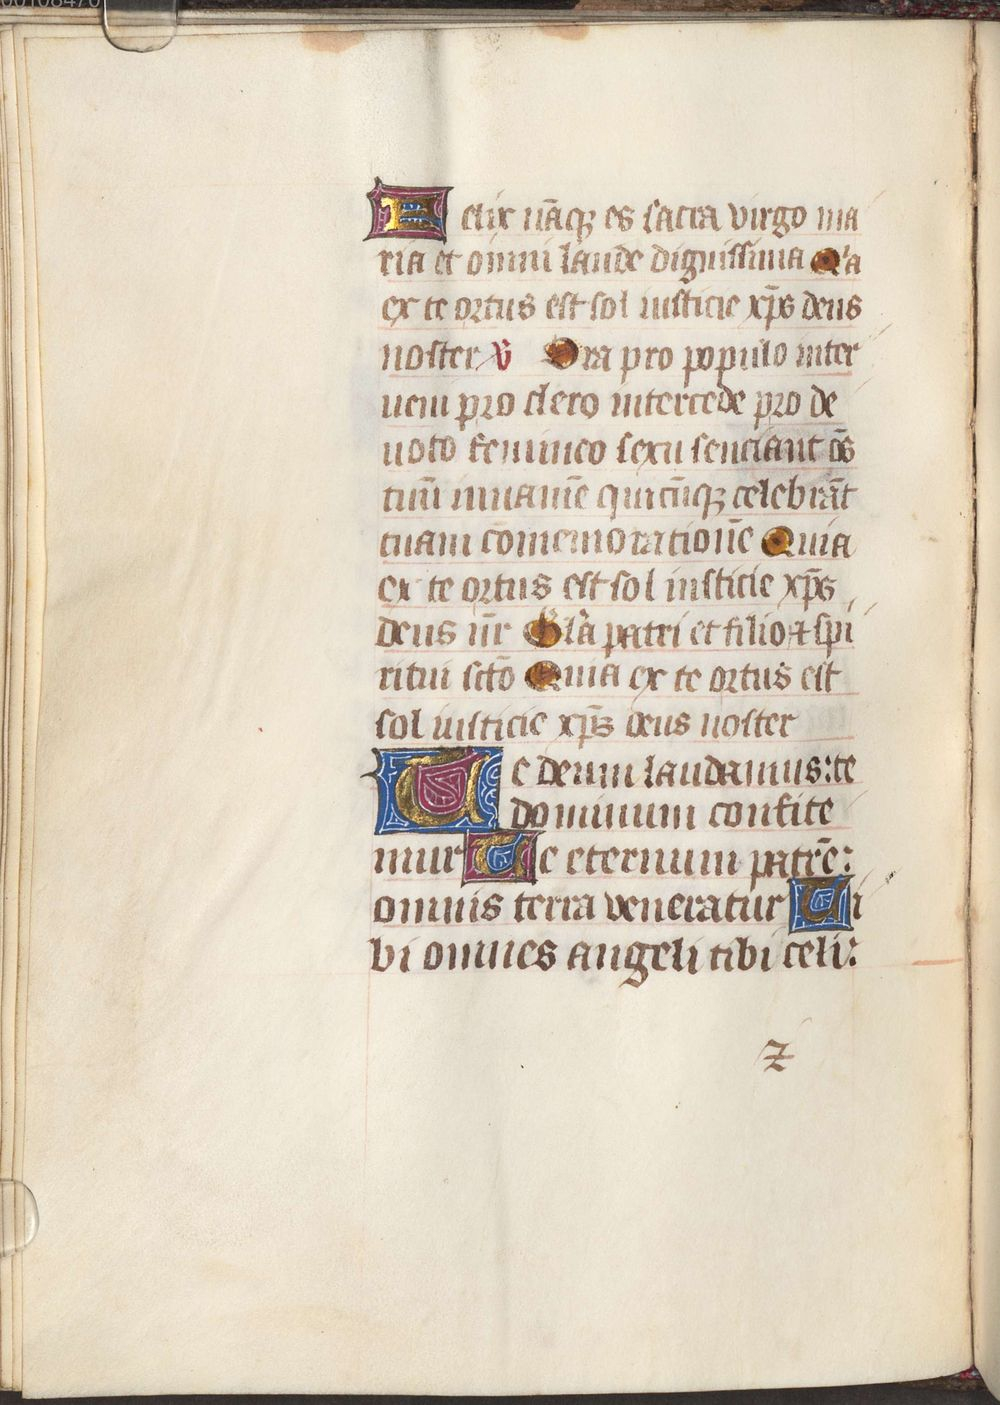 Felix nãqꝫ es sacra virgo ma
ria et omni laude dignissima Qꝛa
ex te ortus est sol iusticie xp̃s deus
noster ℣ Ora pro populo inter
ueni pro clero intercede pro de
uoto femineo sexu senciant oẽs
tuũ iuuamẽ quicũqꝫ celebrãt
tuam cõmemorationẽ Quia
ex te ortus est sol iusticie xp̃s
deus nr̃ Glã patri et filio ⁊ spi
ritui sctõ Quia ex te ortus est
sol iusticie xp̃s deus noster
Te deum laudamus: te
dominum confite
mur Te eternum patrẽ:
omnis terra veneratur Ti
bi omnes angeli tibi celi:
z